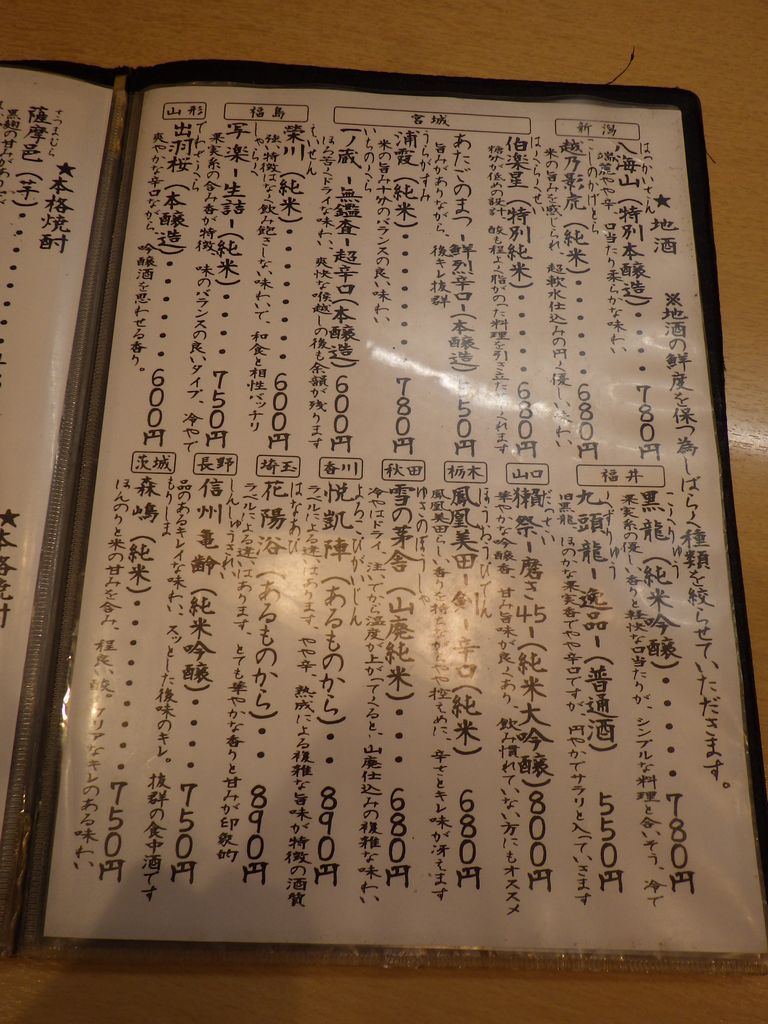 ★地酒
※地酒の鮮度を保つ為しばらく種類を絞らせていただきます。
新潟
はっかいさん
八海山(特別本醸造)・・・780円
端麗やや辛、口当たり柔らかな味わい
こしのかげとら
越乃影虎(純米)・・・・・680円
米の旨みを感じられ、超軟水仕込みの円く優しい味わい
宮城
はくらくせい
伯楽星(特別純米)・・・・680円
糖分が低めの設計、酸も程よく脂がのった料理を引き立たせてくれます
あたごのまつ-鮮烈辛口-(本醸造)550円
旨みがありながら、後キレ抜群
うらがすみ
浦霞(純米)・・・・・780円
米の旨み十分のバランスの良い味わい
いちのくら
一ノ蔵-無鑑査-超辛口(本醸造)600円
ほろ苦くドライな味わい、爽快な喉越しの後も余韻が残ります
福島
えいせん
榮川(純米)・・・・・600円
強い特徴はなく飲み飽きしない味わいで、和食と相性バッチリ
しゃらく
写楽-生詰-(純米)・・・・750円
果実系の含み香が特徴、味のバランスの良いタイプ、冷やで
山形
でわざくら
出羽桜(本醸造)・・・・・600円
爽やかな辛口ながら、吟醸酒を思わせる香り。
福井
こくりゅう
黒龍(純米吟醸)・・・・780円
果実系の優しい香りと軽快な口当たりが、シンプルな料理と合いそう、冷で
くずりゅう
九頭龍-逸品-(普通酒)550円
旧黒龍、ほのかな果実香でやや辛口ですが、円やかでサラリと入っていきます
山口
だっさい
獺祭-磨き45-(純米大吟醸)800円
華やかな吟醸香、甘み旨味が良くあり、飲み慣れていない方にもオススメ
栃木
ほうおうびでん
鳳凰美田-剣-辛口(純米)680円
鳳凰美田らしい香りを持ちながらもやや控えめに、辛さとキレ味が冴えます
秋田
ゆきのぼうしゃ
雪の茅舎(山廃純米)・・680円
冷やはドライ、注いでから温度が上がってくると、山廃仕込みの複雑な味わい
香川
よろこびがいじん
悦凱陣(あるものから)・・890円
ラベルによる違いはあります、やや辛、熟成による複雑な旨味が特徴の酒質
埼玉
はなあび
花陽浴(あるものから)・・890円
ラベルによる違いはあります、とても華やかな香りと甘みが印象的
長野
しんしゅうきれい
信州亀齢(純米吟醸)・・・750円
品のあるキレイな味わい、スッとした後味のキレ。抜群の食中酒です
茨城
もりしま
森嶋(純米)・・・・・750円
ほんのりと米の甘みを含み、程良い酸。クリアなキレのある味わい
★本格焼酎
さつまむら
薩摩邑(芋)・・・・・
★本格焼酎